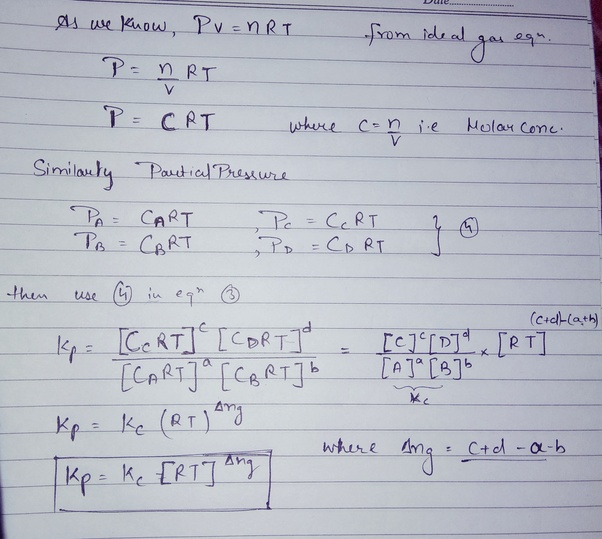 Date
As we know, PV = nRT from ideal gas eqn.
P = n/V RT
P = CRT where C = n/V i.e Molar Conc.
Similarly Partial Pressure
P_A = C_A RT , P_C = C_C RT
P_B = C_B RT , P_D = C_D RT } ④
then use ④ in eqn ③
Kp = [C_C RT]^c [C_D RT]^d / [C_A RT]^a [C_B RT]^b = [C]^c [D]^d / [A]^a [B]^b × [RT]^(c+d)-(a+b)
Kc
Kp = Kc (RT)^Δng
where Δng = c+d-a-b
Kp = Kc [RT]^Δng